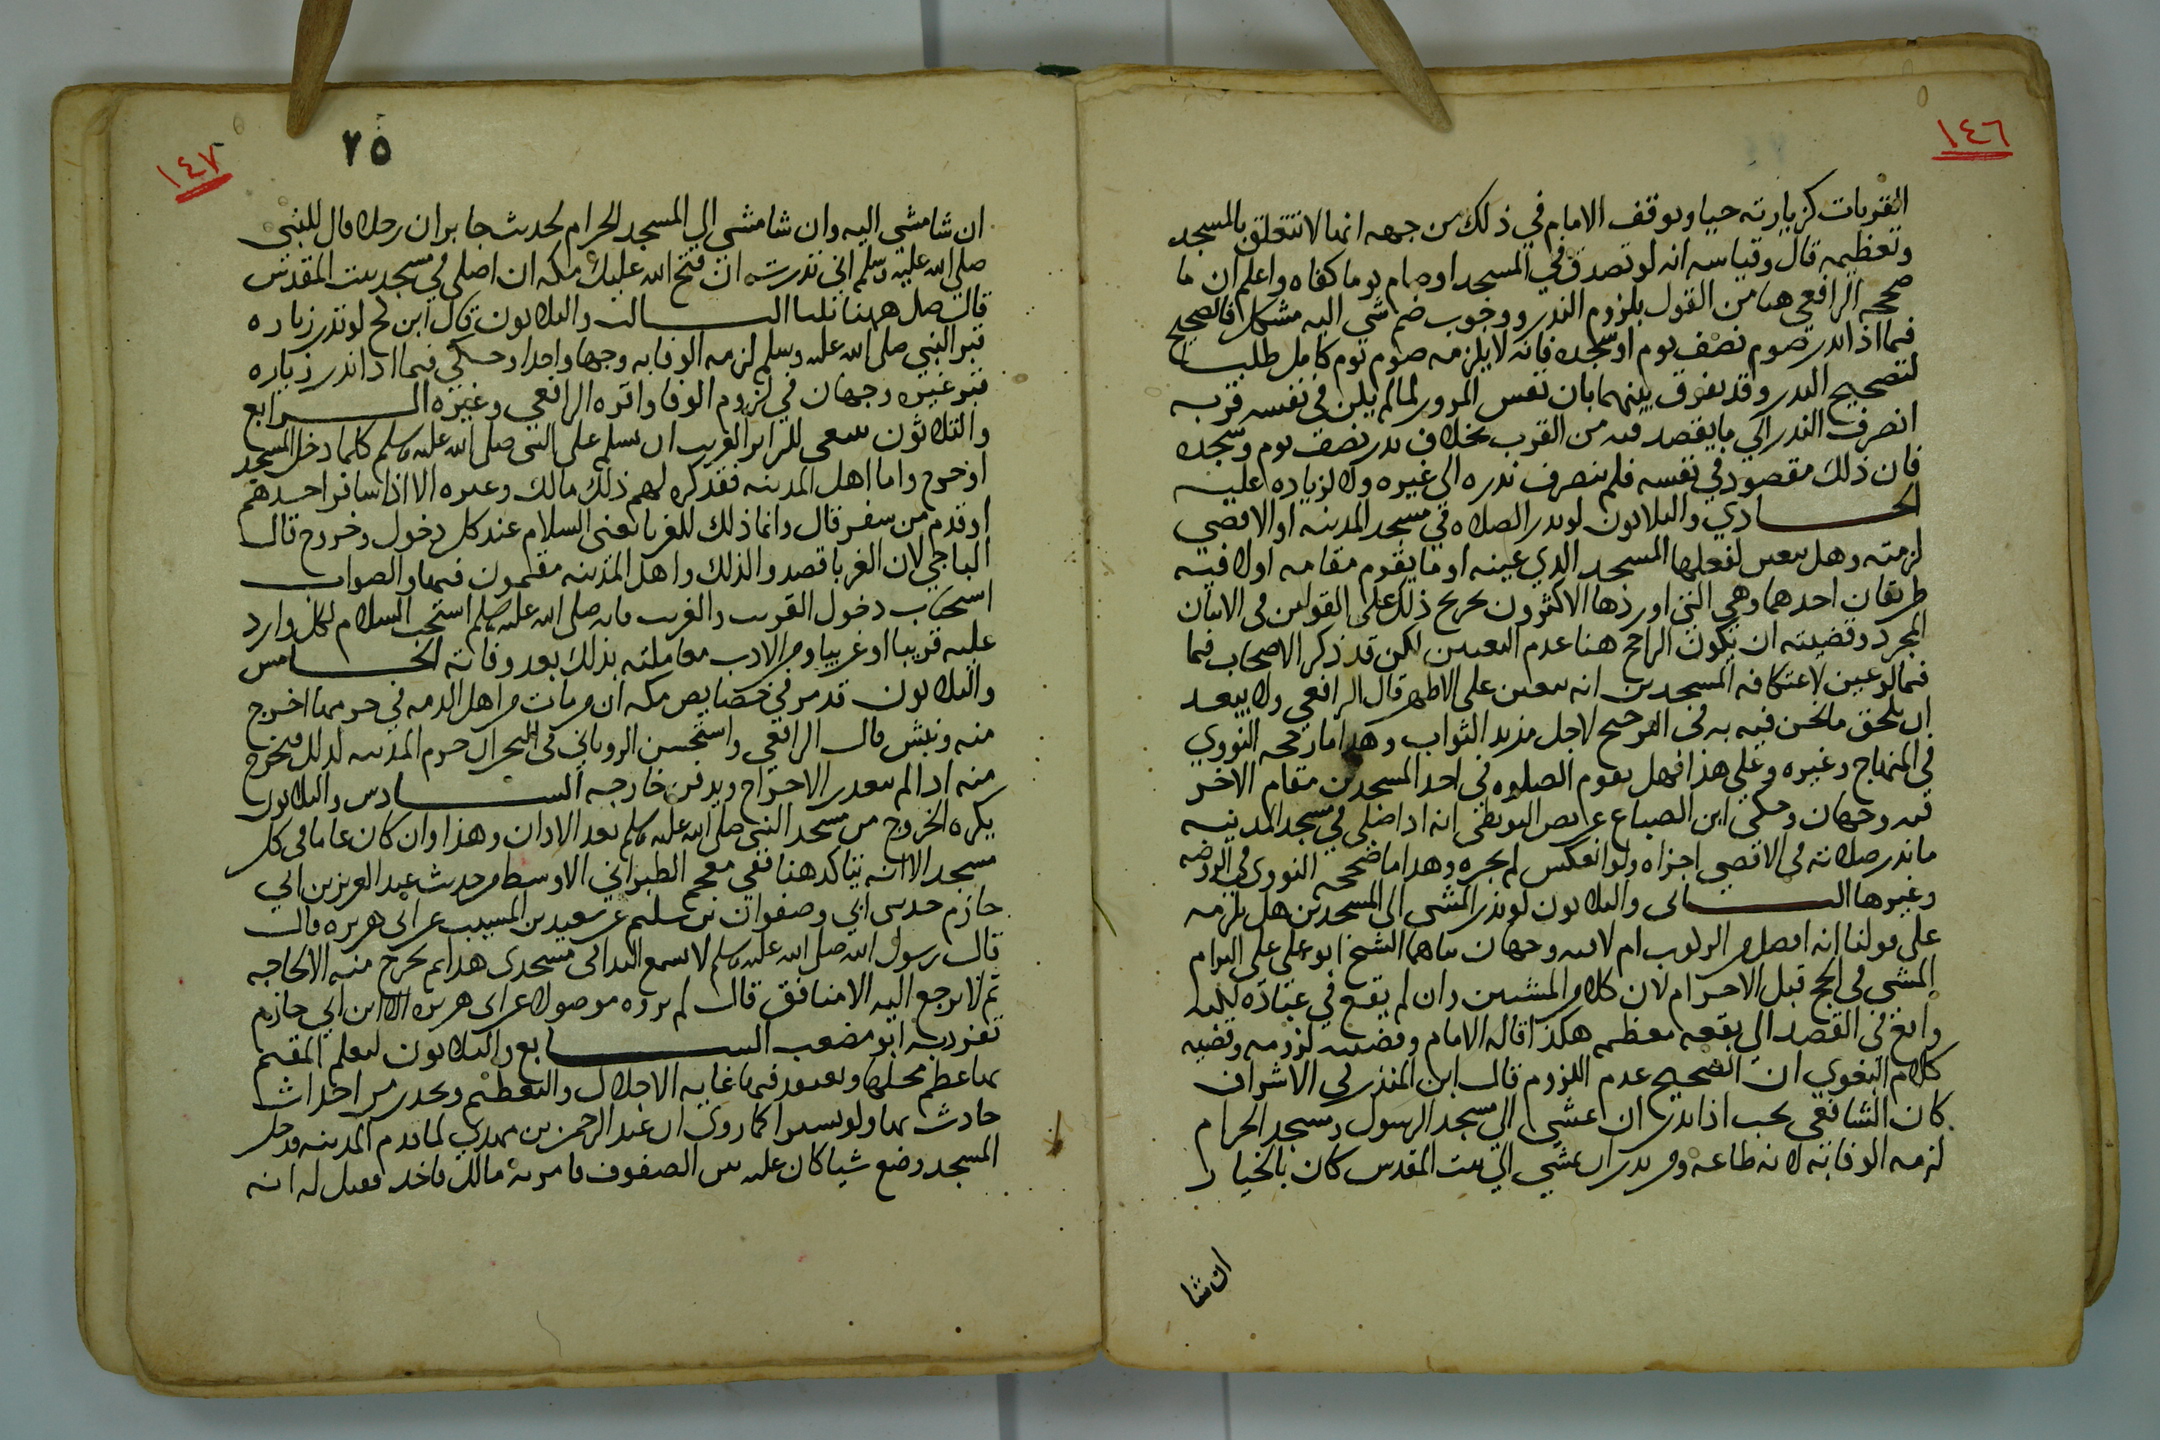 ١٤٦
القربات كزيارته حيا وتوقف الامام في ذلك من جهه انها لا تتعلق بالمسجد
وتعظيمه قال وقياسه انه لو تصدق في المسجد او صام يوما كفاه واعلم ان ما
صححه الرافعي هنا من القول بلزوم النذر ووجوب ضم شي اليه مشكل فالصحيح
فيما اذا نذر صوم نصف يوم او سجده فانه لا يلزمه صوم يوم كامل طلبا
لتصحيح النذر وقد يفرق بينهما بان نفس المرور لما لم يكن في نفسه قربه
انصرف النذر الي ما يقصد فيه من القرب بخلاف نذر نصف يوم وسجده
فان ذلك مقصود في نفسه فلم ينصرف نذره الي غيره ولا لزياده عليه
الحادي والثلاثون لو نذر الصلاه في مسجد المدينه او الاقصي
لزمته وهل يتعين لفعلها المسجد الذي عينه او ما يقوم مقامه اولا فيه
طريقان احدهما وهي التي اوردها الاكثرون تخريج ذلك علي القولين في الاتيان
المجرد وقضيته ان يكون الراجح هنا عدم التعيين لكن قد ذكر الاصحاب فيما
فيما لو عين لاعتكافه المسجدين انه يتعين علي الاظهر قال الرافعي ولا يبعد
ان يلحق ما نحن فيه به في الترجيح لاجل مزيد الثواب وهذا ما رجحه النووي
في المنهاج وغيره وعلي هذا فهل تقوم الصلوه في احد المسجدين مقام الاخر
فيه وجهان وحكي ابن الصباغ عن نص البويطي انه اذا صلي في مسجد المدينه
ما نذر صلاته في الاقصي اجزاه ولو انعكس لم يجره وهذا ما صححه النووي في الروضه
وغيرها الثاني والثلاثون لو نذر المشي الي المسجدين هل يلزمه
علي قولنا انه افضل من الركوب ام لا فيه وجهان بناهما الشيخ ابو علي علي التزام
المشي في الحج قبل الاحرام لان كلا من المشيين وان لم يقع في عباده
واقع في القصد الي بقعه معظمه هكذا قاله الامام وقضيته لزومه وقضيه
كلام البغوي ان الصحيح عدم اللزوم قال ابن المنذر في الاشراف
كان الشافعي يحب اذا نذر ان يمشي الي مسجد الرسول ومسجد الحرام
لزمه الوفا به لانه طاعه ومن نذر ان يمشي الي بيت المقدس كان بالخيار
ان شا
١٤٧
٧٥
ان شا مشي اليه وان شا مشي الي المسجد الحرام لحديث جابر ان رجلا قال للنبي
صلي الله عليه وسلم اني نذرت ان فتح الله عليك مكه ان اصلي في مسجد بيت المقدس
قال صل ههنا ثلثا الثالث والثلاثون قال ابن كج لو نذر زياره
قبر النبي صلي الله عليه وسلم لزمه الوفا به وجها واحدا وحكي فيما اذا نذر زياره
قبر غيره وجهان في لزوم الوفا واقره الرافعي وغيره الرابع
والثلاثون ينبغي للزاير الغريب ان يسلم علي النبي صلي الله عليه وسلم كلما دخل المسجد
او خرج واما اهل المدينه فقد كره لهم ذلك مالك وغيره الا اذا سافر احدهم
او قدم من سفر قال وانما ذلك للغربا يعني السلام عند كل دخول وخروج قال
الباجي لان الغربا قصدوا لذلك واهل المدينه مقيمون فيها والصواب
استحباب دخول القريب والغريب فانه صلي الله عليه وسلم استحب السلام لكل وارد
عليه قريبا او غريبا ومن الادب معاملته بذلك بعد وفاته الخامس
والثلاثون قد مر في خصايص مكه ان من مات من اهل الذمه في حرمها اخرج
منه ونبش قال الرافعي واستحسن الروياني في البحر ان حرم المدينه كذلك فيخرج
منه اذا لم يتعذر الاخراج ويدفن خارجه السادس والثلاثون
يكره الخروج من مسجد النبي صلي الله عليه وسلم بعد الاذان وهذا وان كان عاما في كل
مسجد الا انه يتاكد هنا ففي معجم الطبراني الاوسط من حديث عبد العزيز بن ابي
حازم حدثني ابي وصفوان بن سليم عن سعيد بن المسيب عن ابي هريره قال
قال رسول الله صلي الله عليه وسلم لا يسمع النداء في مسجدي هذا ثم يخرج منه الا لحاجه
ثم لا يرجع اليه الا منافق قال لم يروه موصولا عن ابي هريره الا ابن ابي حازم
تفرد به ابو مصعب السابع والثلاثون ليعلم المقيم
بها عظم محلها ويعتمد فيها غايه الاجلال والتعظيم ويحذر من احداث
حادث بها ولو يسيرا كما روي ان عبد الرحمن بن مهدي لما قدم المدينه فدخل
المسجد وضع شيا كان عليه بين الصفوف فامر به مالك فاخذ فقيل له انه